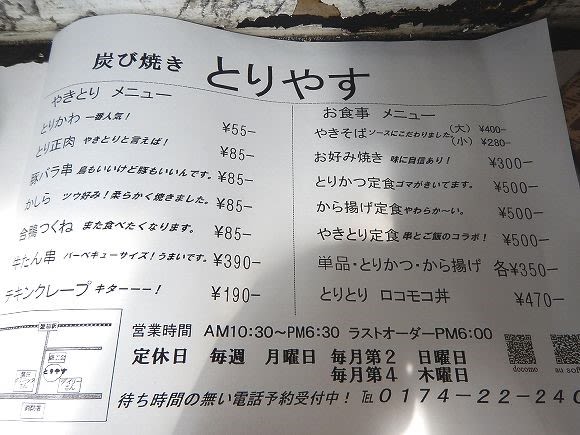 炭び焼き とりやす
やきとり メニュー
とりかわ 一番人気! ¥55-
とり正肉 やきとりと言えば! ¥85-
豚バラ串 鳥もいいけど豚もいいんです。 ¥85-
かしら ツウ好み!柔らかく焼きました。 ¥85-
合鴨つくね また食べたくなります。 ¥85-
牛たん串 バーベキューサイズ!うまいです。 ¥390-
チキンクレープ キターーー! ¥190-
お食事 メニュー
やきそば ソースにこだわりました。 (大) ¥400-
(小) ¥280-
お好み焼き 味に自信あり! ¥300-
とりかつ定食 ゴマがきいてます。 ¥500-
から揚げ定食 やわらか〜い。 ¥500-
やきとり定食 串とご飯のコラボ! ¥500-
単品・とりかつ・から揚げ 各¥350-
とりとり ロコモコ丼 ¥470-
営業時間 AM10:30〜PM6:30 ラストオーダーPM6:00
定休日 毎週 月曜日 毎月第2 日曜日
毎月第4 木曜日
docomo au sof
とりやす
待ち時間の無い電話予約受付中! ℡ 0174-22-240